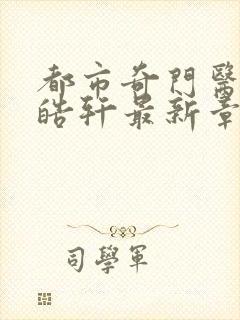 都市奇門醫
皓軒最新章
司學軍